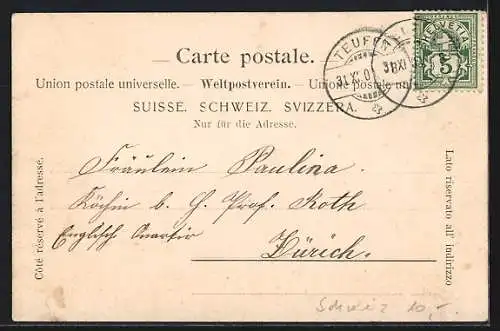 Carte postale.
Union postale universelle. — Weltpostverein. — Unione postale
SUISSE. SCHWEIZ. SVIZZERA.
Nur für die Adresse.
HELVETIA
5
TEUFEN
31.XI
Côté réservé à l'adresse.
Lato riservato all' indirizzo
Fräulein Paulina
Köchin b. H. Prof. Roth
Englisch Quartir
Zürich.
Schweiz 10,-